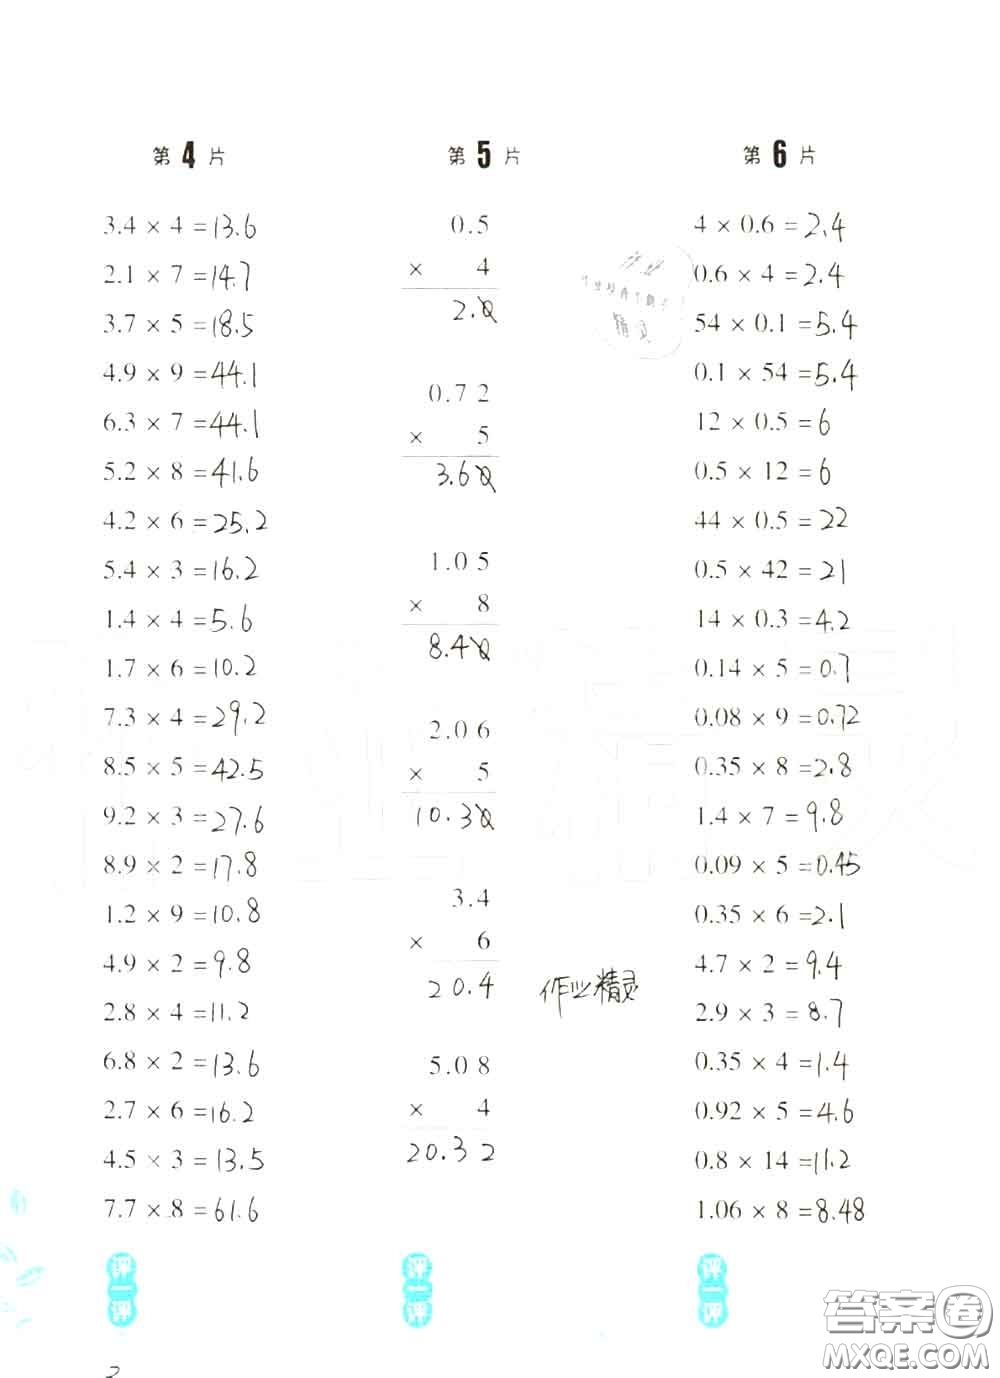 第 4 片
3.4 × 4 = 13.6
2.1 × 7 = 14.7
3.7 × 5 = 18.5
4.9 × 9 = 44.1
6.3 × 7 = 44.1
5.2 × 8 = 41.6
4.2 × 6 = 25.2
5.4 × 3 = 16.2
1.4 × 4 = 5.6
1.7 × 6 = 10.2
7.3 × 4 = 29.2
8.5 × 5 = 42.5
9.2 × 3 = 27.6
8.9 × 2 = 17.8
1.2 × 9 = 10.8
4.9 × 2 = 9.8
2.8 × 4 = 11.2
6.8 × 2 = 13.6
2.7 × 6 = 16.2
4.5 × 3 = 13.5
7.7 × 8 = 61.6
评一评
第 5 片
0.5
× 4
2.0
0.72
× 5
3.60
1.05
× 8
8.40
2.06
× 5
10.30
3.4
× 6
20.4
作业精灵
5.08
× 4
20.32
评一评
第 6 片
4 × 0.6 = 2.4
0.6 × 4 = 2.4
54 × 0.1 = 5.4
0.1 × 54 = 5.4
12 × 0.5 = 6
0.5 × 12 = 6
44 × 0.5 = 22
0.5 × 42 = 21
14 × 0.3 = 4.2
0.14 × 5 = 0.7
0.08 × 9 = 0.72
0.35 × 8 = 2.8
1.4 × 7 = 9.8
0.09 × 5 = 0.45
0.35 × 6 = 2.1
4.7 × 2 = 9.4
2.9 × 3 = 8.7
0.35 × 4 = 1.4
0.92 × 5 = 4.6
0.8 × 14 = 11.2
1.06 × 8 = 8.48
评一评
答案圈
MXQE.COM
2